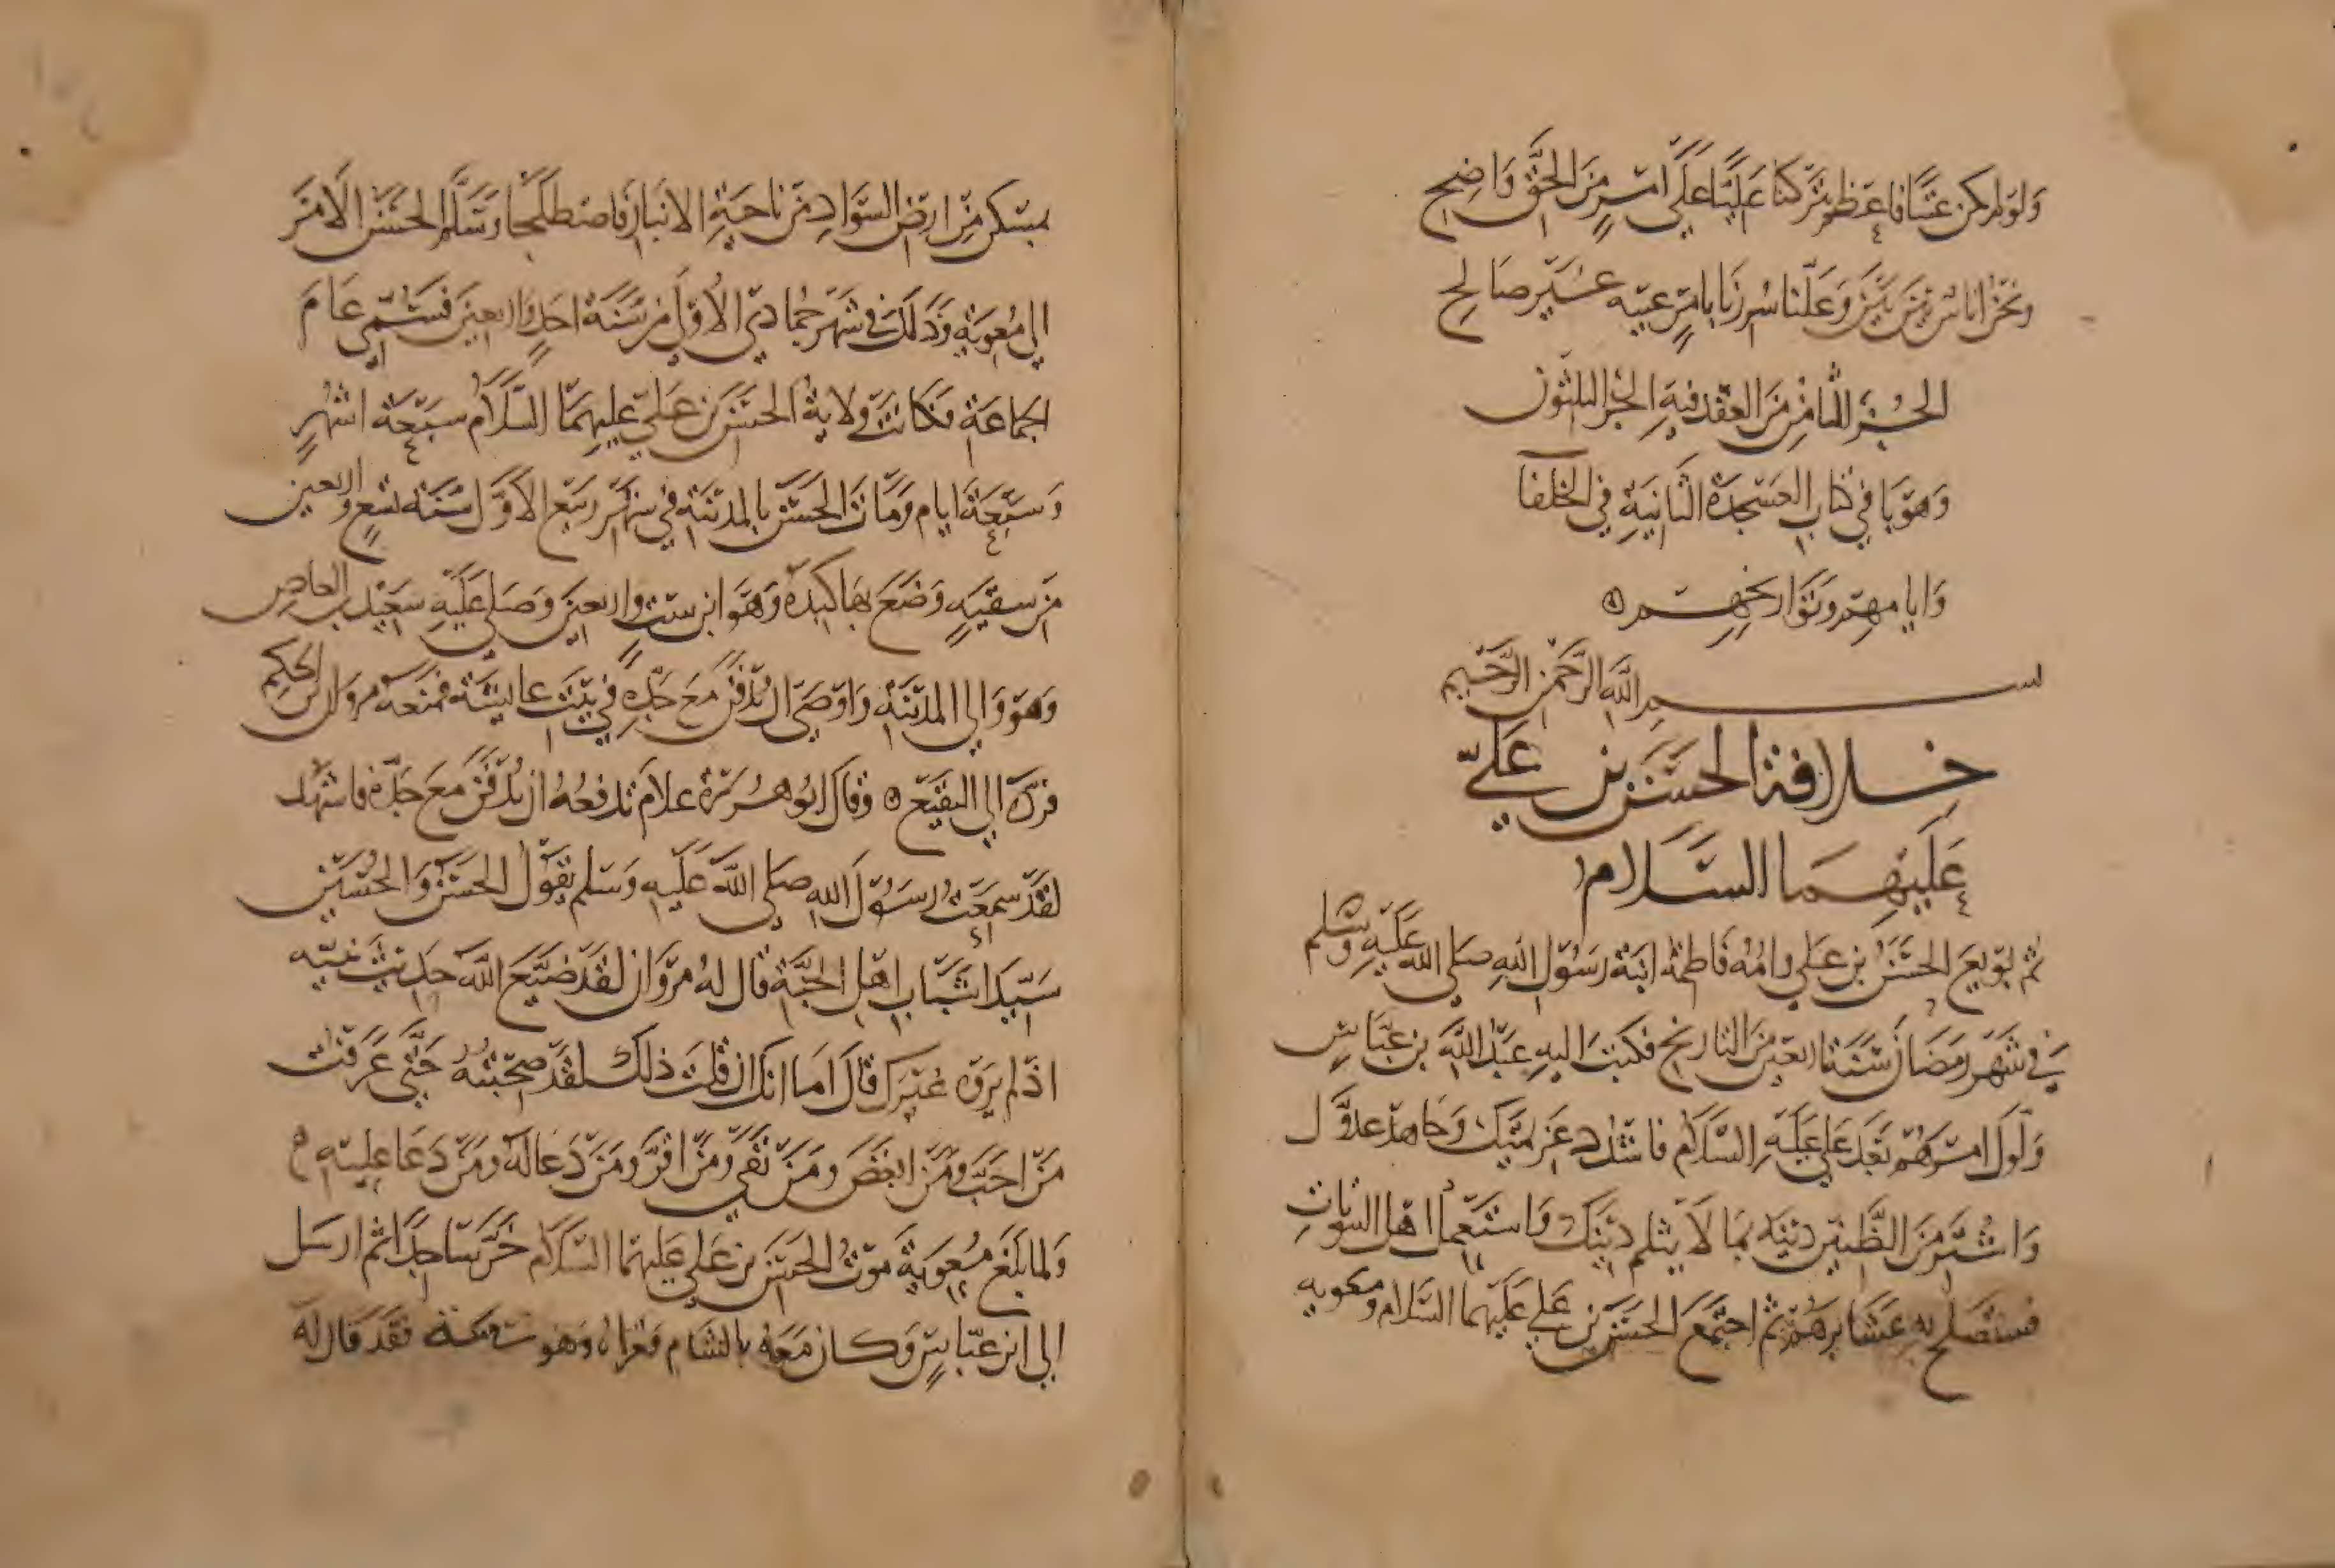 ولو لم يكن عنا فاعظم تركنا علينا على امر من الحق واضح
ونحن اناس بين بين وعلنا سررنا بامر غبه غير صالح
الجزء الثامن من العقد فيه الجزء الثلثون
وهو باقي كتاب العسجدة الثانية في الخلفا
وايامهم وتواريخهم
بسم الله الرحمن الرحيم
خلافة الحسن بن علي
عليهما السلام
ثم بويع الحسن بن علي وامه فاطمة ابنة رسول الله صلى الله عليه وسلم
في شهر رمضان سنة اربعين من التاريخ فكتب اليه عبد الله بن عباس
ولوك امرهم بعد علي عليه السلام فاشدد عن يمينك وجاهد عدوك
واشتر من الظنين دينه بما لا يثلم دينك واستعمل اهل البيوتات
فستصلح به عشايرهم ثم اجتمع الحسن بن علي عليهما السلام ومعويه
بمسكن من ارض السواد من ناحية الانبار فاصطلحا وسلم الحسن الامر
الى معوية وذلك في شهر جمادى الاولى من سنة احد واربعين فسمي عام
الجماعة فكانت ولاية الحسن بن علي عليهما السلام سبعة اشهر
وسبعة ايام ومات الحسن بالمدينة في شهر ربيع الاول سنة تسع واربعين
من سقيه وضع بها كبده وهو ابن ست واربعين وصلى عليه سعيد بن العاص
وهو والي المدينة واوصى ان يدفن مع جده في بيت عايشة فمنعه مروان بن الحكم
فرده الى البقيع وقال ابو هريرة علام تدفعه ان يدفن مع جده فاشهد
لقد سمعت رسول الله صلى الله عليه وسلم يقول الحسن والحسين
سيدا شباب اهل الجنة قال له مروان لقد ضيع الله حديث نبيه
اذ لم يروه غيرك قال اما انك ان قلت ذلك لقد صحبته حتى عرفت
من احب ومن ابغض ومن نفى ومن اقر ومن دعا له ومن دعا عليه
ولما بلغ معوية موت الحسن بن علي عليهما السلام خر ساجدا ثم ارسل
الى ابن عباس وكان معه بالشام فعزاه وهو فقد قال له